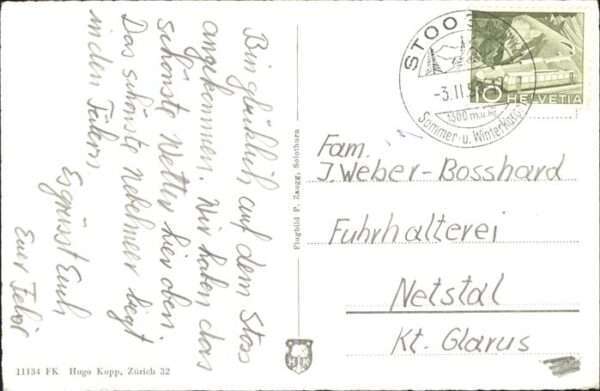 Bin glücklich auf dem Stoss
angekommen. Wir haben das
schönste Wetter hier oben
Das schönste Nebelmeer liegt
in den Tälern
Es grüsst Euch
Euer
Flugbild P. Zaugg, Solothurn
STOOS
-3.II.5
1300 m.ü.M.
Sommer- u. Winterkurort
10 HELVETIA
Fam.
J. Weber-Bosshard
Fuhrhalterei
Netstal
Kt. Glarus
HK
11134 FK Hugo Kopp, Zürich 32